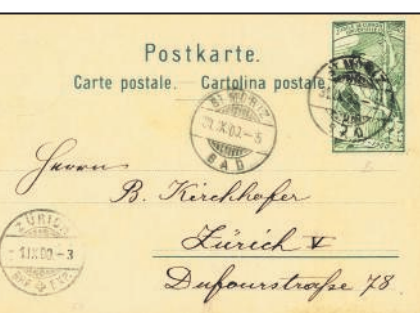 Postkarte.
Carte postale. Cartolina postale.
ST. MORIZ
BAD
ST. MORIZ
BAD
Herrn
B. Kirchhofer
Zürich V
Dufourstraße 78.
ZÜRICH
1.IX.00.-3